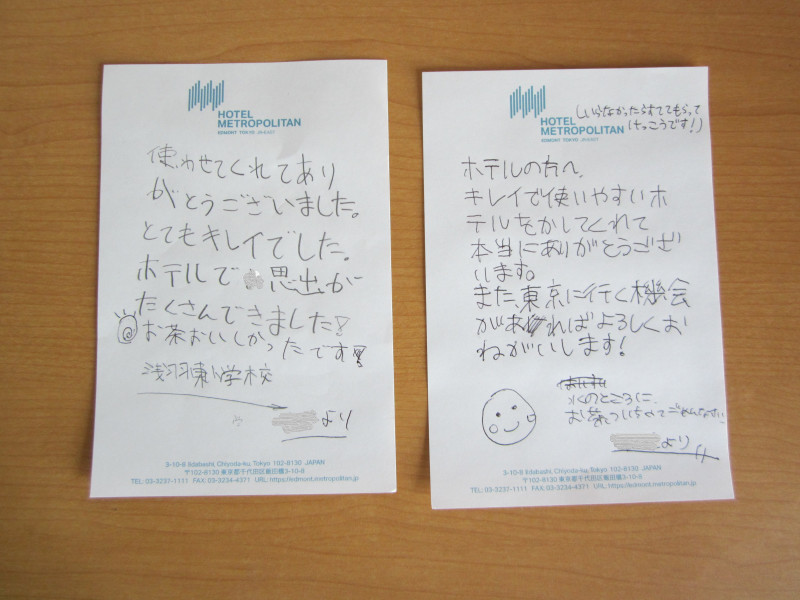 HOTEL
METROPOLITAN
EDMONT TOKYO JR-EAST
使わせてくれてあり
がとうございました。
とてもキレイでした。
ホテルで思出が
たくさんできました!
お茶おいしかったです
浅羽東小学校
より
3-10-8 Iidabashi, Chiyoda-ku, Tokyo 102-8130 JAPAN
〒102-8130 東京都千代田区飯田橋3-10-8
TEL: 03-3237-1111 FAX: 03-3234-4371 URL: https://edmont.metropolitan.jp
HOTEL
METROPOLITAN
EDMONT TOKYO JR-EAST
(いらなかったらすててもらって
けっこうです!)
ホテルの方へ、
キレイで使いやすいホ
テルをかしてくれて
本当にありがとうござ
います。
また、東京に行く機会
があればよろしくお
ねがいします!
のところに、
お茶ついちゃってごめんなさい
より
3-10-8 Iidabashi, Chiyoda-ku, Tokyo 102-8130 JAPAN
〒102-8130 東京都千代田区飯田橋3-10-8
TEL: 03-3237-1111 FAX: 03-3234-4371 URL: https://edmont.metropolitan.jp